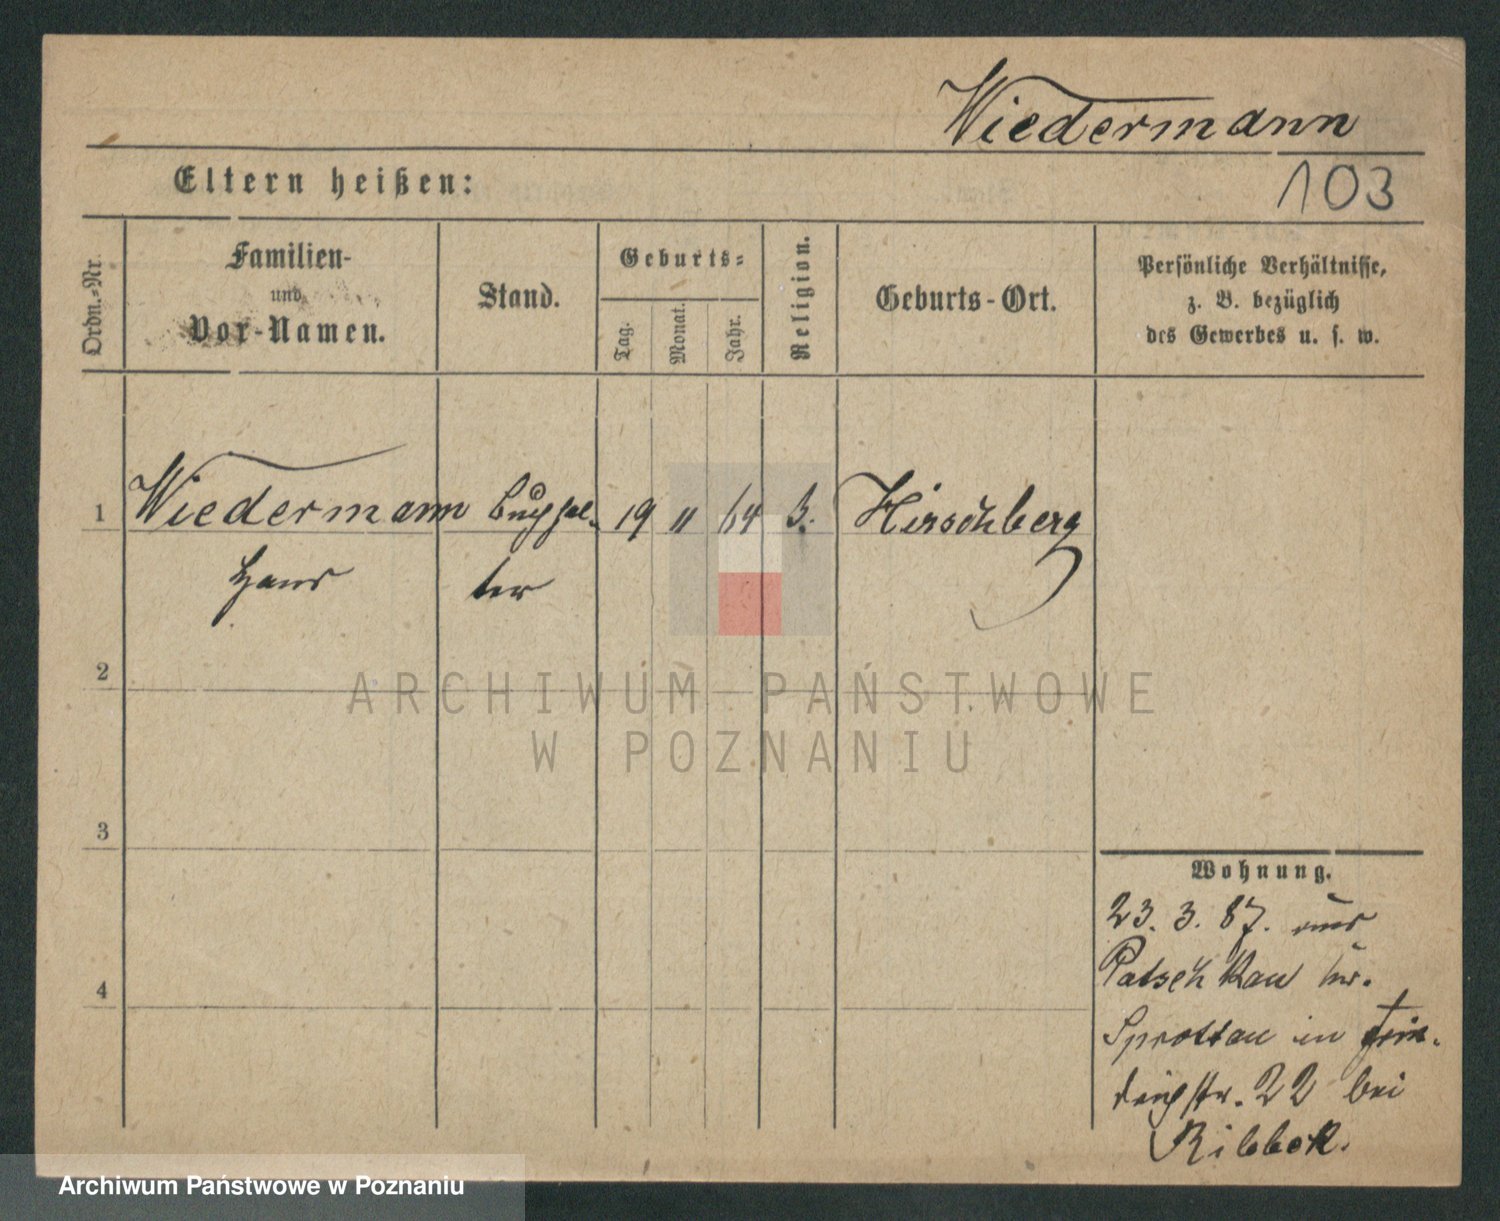 Wiedermann
Eltern heißen:
103
Ordn.-Nr.
Familien-
und
Vor-Namen.
Stand.
Geburts-
Tag.
Monat.
Jahr.
Religion.
Geburts-Ort.
Persönliche Verhältnisse,
z. B. bezüglich
des Gewerbes u. s. w.
1 Wiedermann Buchhal- 19 11 64 Hirschberg
Hans ter
2
ARCHIWUM PAŃSTWOWE
W POZNANIU
3
Wohnung.
23. 3. 87. aus
Patschkau
4
Sprottau in Frie-
drichstr. 22 bei
Ribbek.
Archiwum Państwowe w Poznaniu